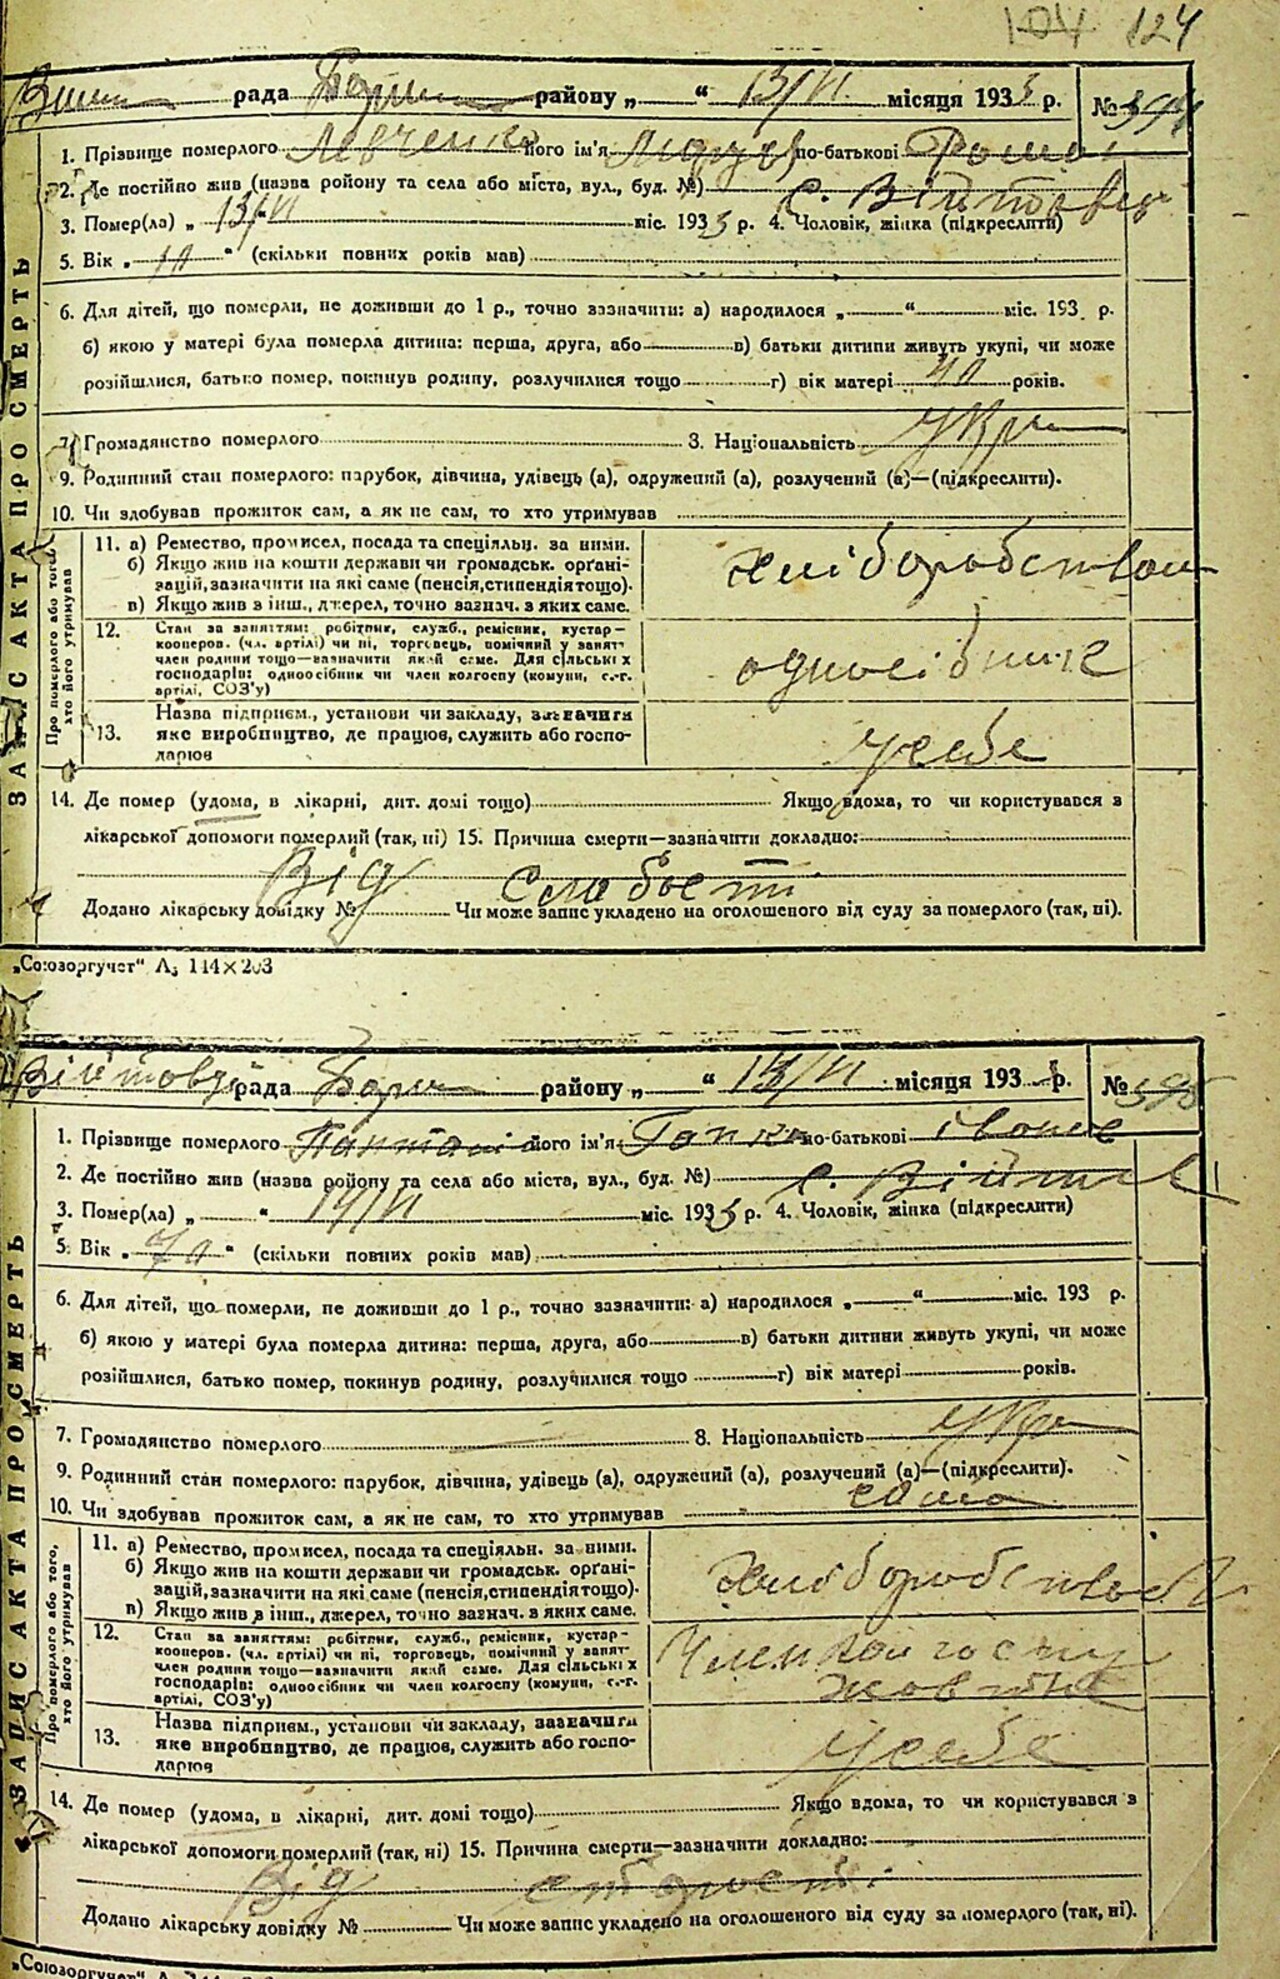 104 124
рада Бориш району „ “ 13/VI місяця 1933 р. № 394
1. Прізвище померлого Левченко його ім'я по-батькові
2. Де постійно жив (назва ройону та села або міста, вул., буд. №) с. Війтовец
3. Помер(ла) „ 13/VI міс. 1933 р. 4. Чоловік, жінка (підкреслити)
5. Вік „ 10 “ (скільки повних років мав)
6. Для дітей, що померли, не доживши до 1 р., точно зазначити: а) народилося „ “ міс. 193 р.
б) якою у матері була померла дитина: перша, друга, або в) батьки дитини живуть укупі, чи може
розійшлися, батько помер, покинув родину, розлучилися тощо г) вік матері 40 років.
7. Громадянство померлого 8. Національність Укр
9. Родинний стан померлого: парубок, дівчина, удівець (а), одружений (а), розлучений (а)—(підкреслити).
10. Чи здобував прожиток сам, а як не сам, то хто утримував
ЗАПИС АКТА ПРО СМЕРТЬ
Про померлого або того, хто його утримував
11. а) Ремество, промисел, посада та спеціяльн. за ними.
б) Якщо жив на кошти держави чи громадськ. орґані-
зацій, зазначити на які саме (пенсія, стипендія тощо).
в) Якщо жив з інш., джерел, точно зазнач. з яких саме.
хліборобством
12. Стан за заняттям: робітник, служб., ремісник, кустар—
кооперов. (чл. артілі) чи ні, торговець, помічний у занят.
член родини тощо—зазначити який саме. Для сільських
господарів: одноосібник чи член колгоспу (комуни, с.-г.
артілі, СОЗ'у)
одноосібник
13. Назва підприєм., установи чи закладу, зазначити
яке виробництво, де працює, служить або госпо-
дарює
у себе
14. Де помер (удома, в лікарні, дит. домі тощо) Якщо вдома, то чи користувався з
лікарської допомоги померлий (так, ні) 15. Причина смерти—зазначити докладно:
Від слабости
Додано лікарську довідку № Чи може запис укладено на оголошеного від суду за померлого (так, ні).
„Союзоргучет“ А₅ 144×203
рада Бориш району „ “ 14/VI місяця 1933 р. № 395
1. Прізвище померлого його ім'я Гапка по-батькові
2. Де постійно жив (назва ройону та села або міста, вул., буд. №) с.
3. Помер(ла) „ “ 14/VI міс. 1933 р. 4. Чоловік, жінка (підкреслити)
5. Вік „ 70 “ (скільки повних років мав)
6. Для дітей, що померли, не доживши до 1 р., точно зазначити: а) народилося „ “ міс. 193 р.
б) якою у матері була померла дитина: перша, друга, або в) батьки дитини живуть укупі, чи може
розійшлися, батько помер, покинув родину, розлучилися тощо г) вік матері років.
7. Громадянство померлого 8. Національність Укр
9. Родинний стан померлого: парубок, дівчина, удівець (а), одружений (а), розлучений (а)—(підкреслити).
10. Чи здобував прожиток сам, а як не сам, то хто утримував сама
ЗАПИС АКТА ПРО СМЕРТЬ
Про померлого або того, хто його утримував
11. а) Ремество, промисел, посада та спеціяльн. за ними.
б) Якщо жив на кошти держави чи громадськ. орґані-
зацій, зазначити на які саме (пенсія, стипендія тощо).
в) Якщо жив в інш., джерел, точно зазнач. з яких саме.
12. Стан за заняттям: робітник, служб., ремісник, кустар—
кооперов. (чл. артілі) чи ні, торговець, помічний у занят.
член родини тощо—зазначити який саме. Для сільських
господарів: одноосібник чи член колгоспу (комуни, с.-г.
артілі, СОЗ'у)
Член колгоспу
13. Назва підприєм., установи чи закладу, зазначити
яке виробництво, де працює, служить або госпо-
дарює
у себе
14. Де помер (удома, в лікарні, дит. домі тощо) Якщо вдома, то чи користувався з
лікарської допомоги померлий (так, ні) 15. Причина смерти—зазначити докладно:
Від старости
Додано лікарську довідку № Чи може запис укладено на оголошеного від суду за померлого (так, ні).
„Союзоргучет“